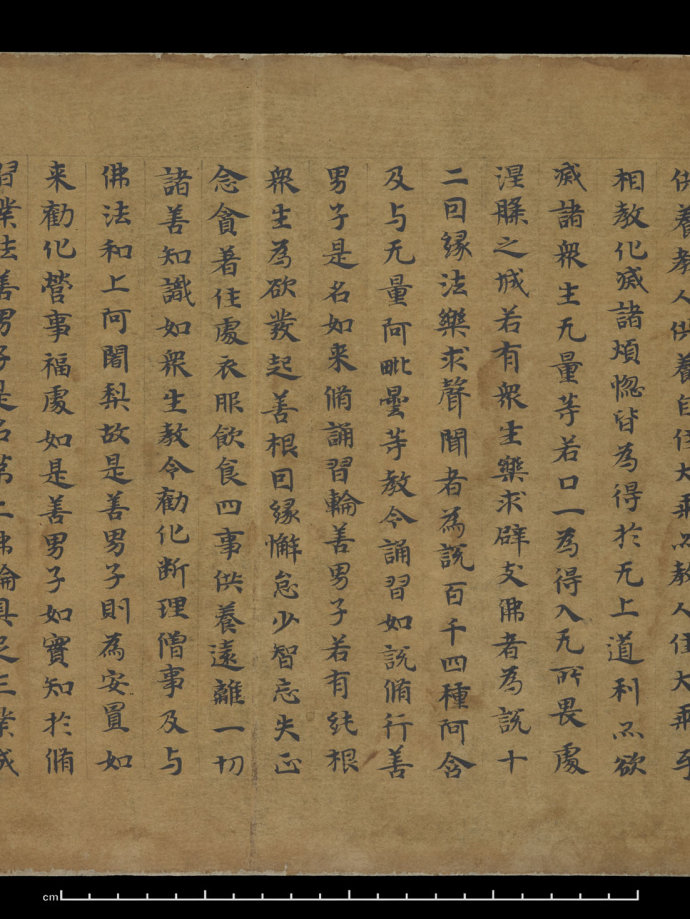 供養教人供養自住大乘亦教人住大乘
相教化滅諸煩惚皆為得於无上道利亦欲
滅諸衆生无量等若口一為得入无所畏處
涅槃之城若有衆生樂求辟支佛者為說十
二回緣法樂求聲聞者為說百千四種阿含
及与无量阿毗曇等教令誦習如說脩行善
男子是名如來脩誦習輪善男子若有純根
衆生為欲發起善根回緣懈怠少智忘失正
念貪著住處衣服飲食四事供養遠離一切
諸善知識如衆生教令勸化断理僧事及与
佛法和上阿闍梨故是善男子則為安置如
来勸化營事福處如是善男子如實知於脩
習業法善男子是名第二佛輪具足三業成
cm